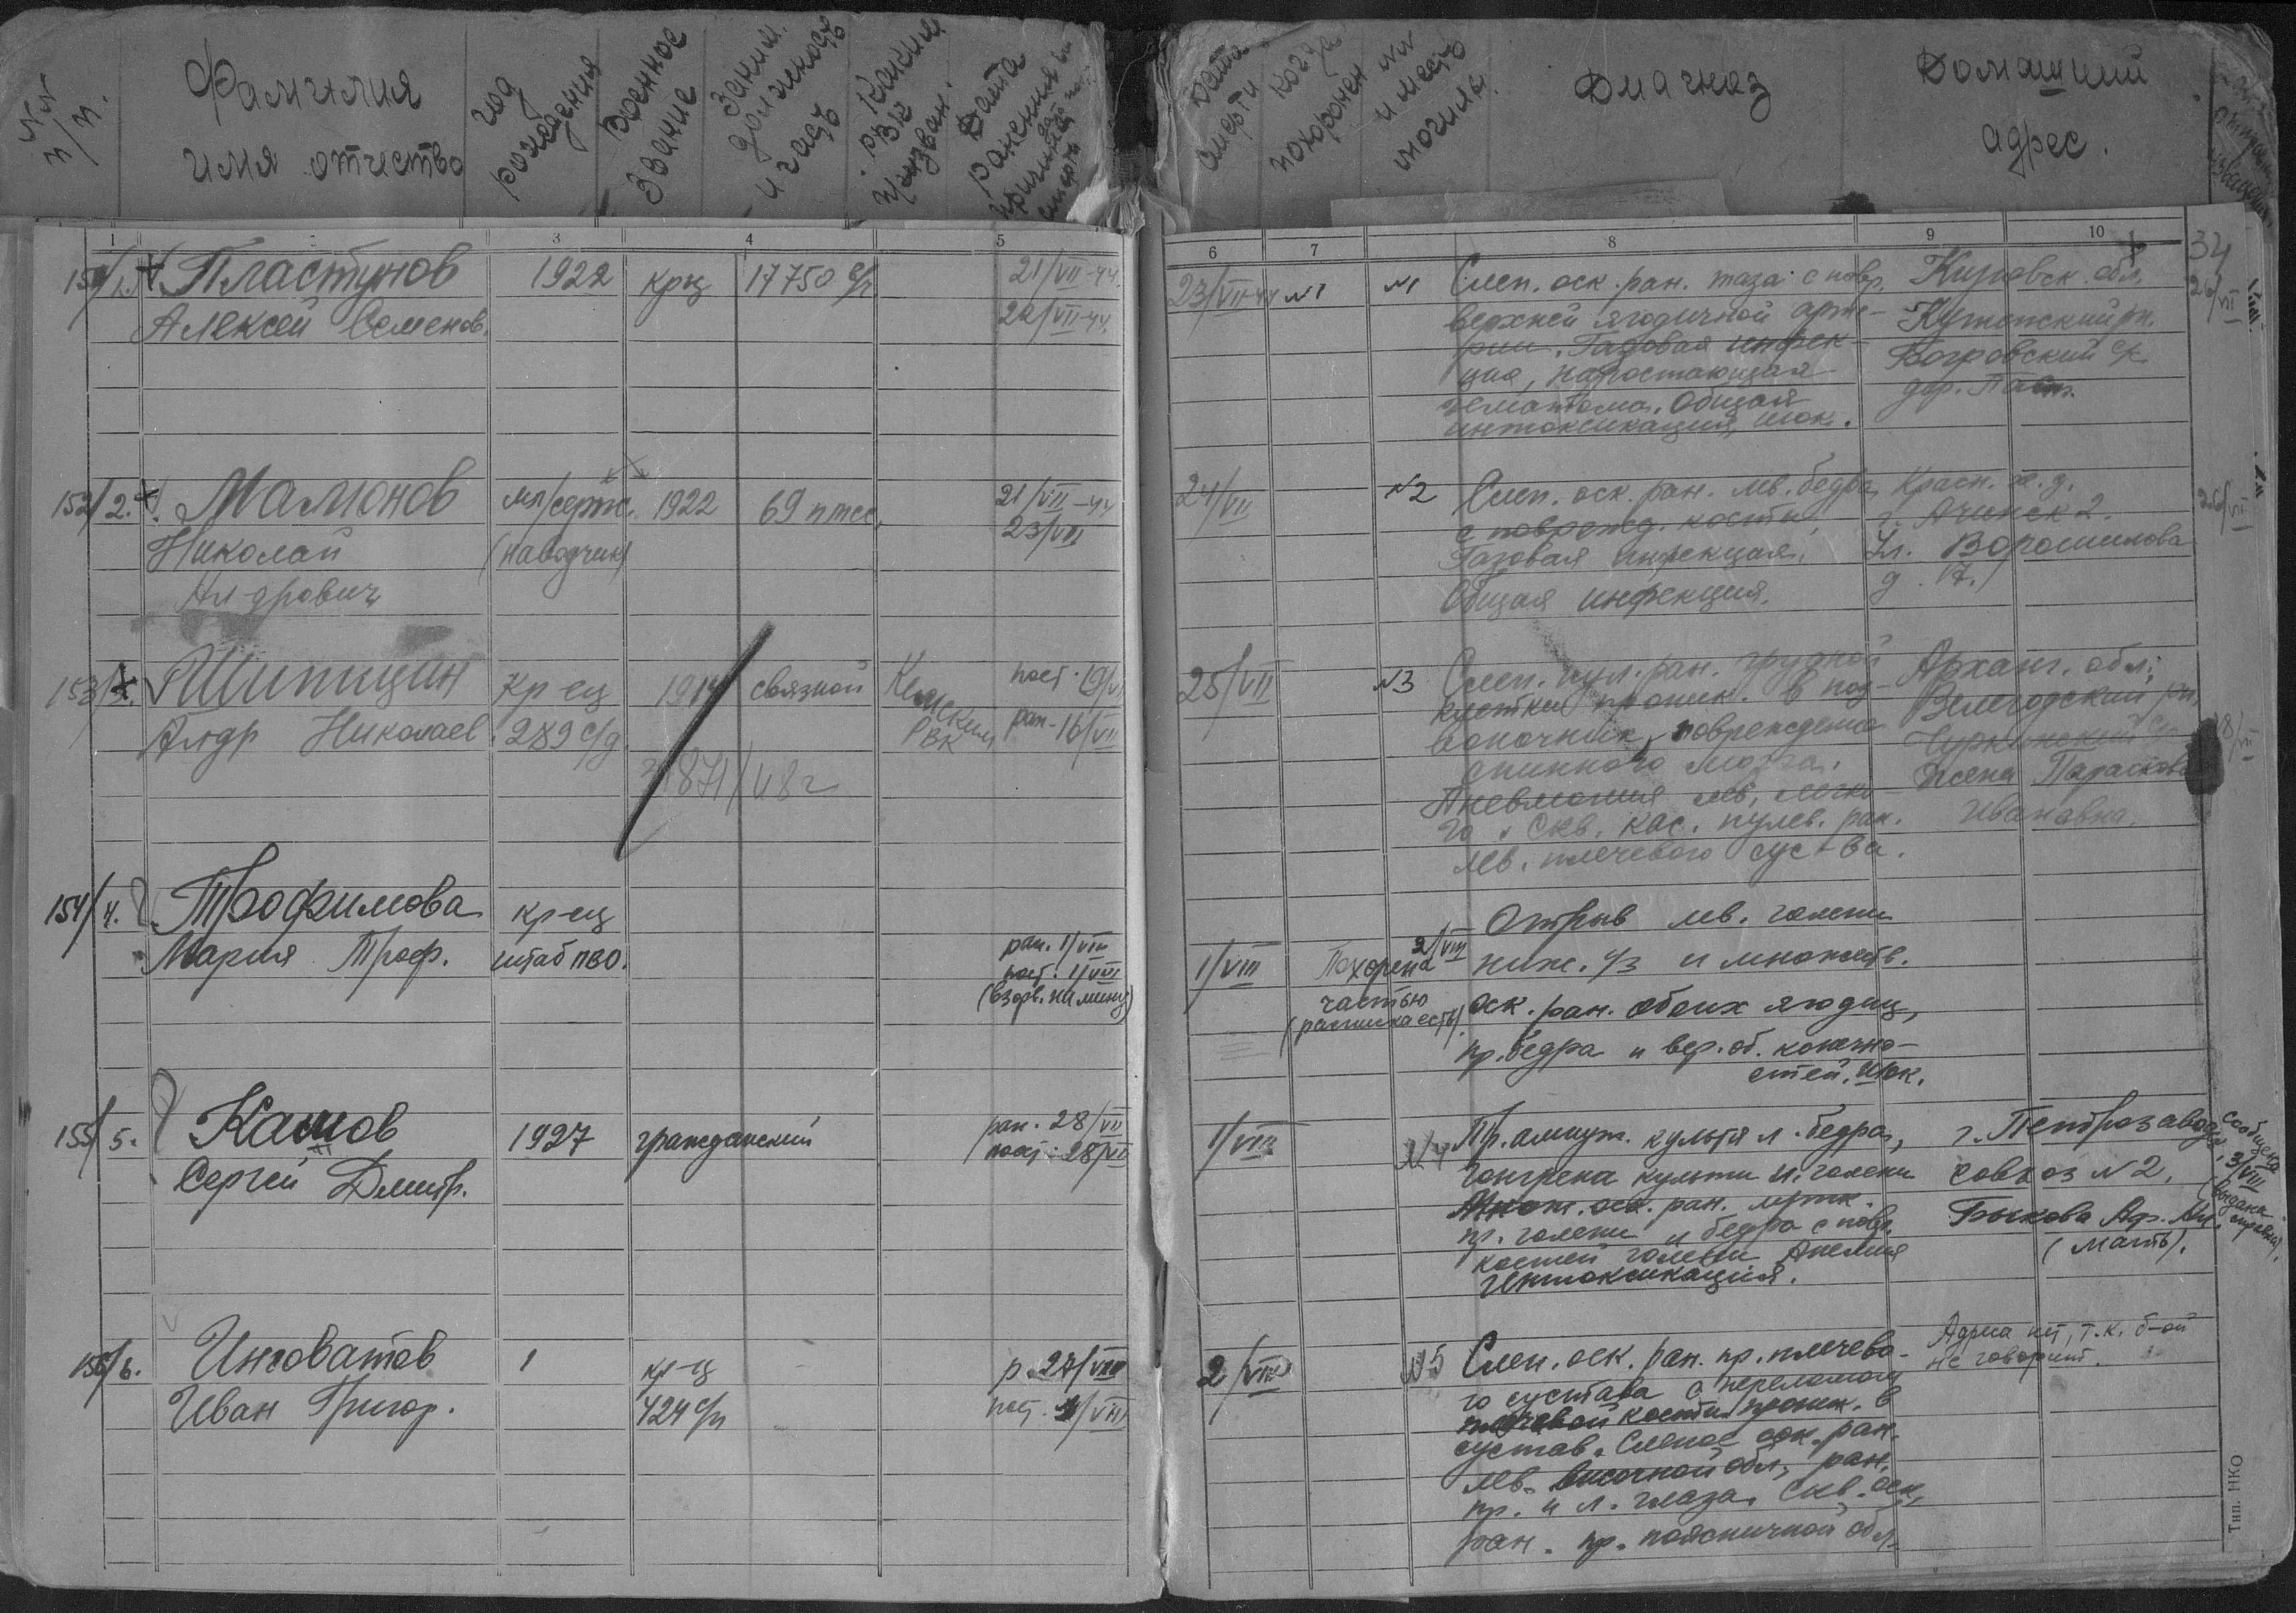 NN п/п.
Фамилия
имя отчество
год рождения
Военное звание
Заним. должность и часть
Каким РВК призван.
Дата ранения
Дата смерти
Когда похоронен
NN и место могилы.
Диагноз
Домашний
адрес.
1 3 4 5 6 7 8 9 10
34
Пластунов 1922 крц 17750 с/ч 21/VII-44
Алексей Семенов. 22/VII-44.
23/VII-44 N1 N1 Слеп. оск. ран. таза с повр.
верхней ягодичной арте-
рии. Газовая инфек-
ция, наростающая
гематома. Общая
интоксикация, шок.
Кировск. обл.
26/VII
152/2. Малюнов мл/серж. 1922 69 птсс. 21/VII-44
Николай (наводчик) 23/VII
Ал-дрович
24/VII N2 Слеп. оск. ран. лв. бедра
с поврежд. кости.
Газовая инфекция.
Общая инфекция.
Красн. ж.д.
г. Ачинск 2.
Ул. Ворошилова
д. 17.
26/VII
153/3. Шипицин Кр-ец 1914 связной Кемский РВК пост. 19/VII
Алдр Николаев 289 с/д ран. 16/VII
871/48г
25/VII N3 Слеп. пул. ран. грудной
клетки проник. в поз-
воночник, повреждение
спинного мозга.
Пневмония лев. легко-
го. Скв. кас. пулев. ран.
лев. плечевого суст-ва.
Арханг. обл.,
Вилегодский рн,
Жена Парасковья
Ивановна.
154/4. Трофимова кр-ец
Мария Троф. штаб ПВО.
ран. 1/VIII
пост. 1/VIII
(взорв. на мине)
1/VIII Похорена 2/VIII
частью
(расписка есть)
Отрыв лев. голени
ниж. 1/3 и множеств.
оск. ран. обоих ягодиц,
пр. бедра и вер. об. конечно-
стей. Шок.
155/5. Кашов 1927 гражданский ран. 28/VII
Сергей Дмитр. пост. 28/VII
1/VIII N4 Пр. ампут. культя л. бедра,
гонгрена культи и голени
Множ. оск. ран. мягк.
пр. голени и бедра с повр.
костей голени Анемия
Интоксикация.
г. Петрозаводск,
совхоз N2,
Быкова Ар. Ал.
(мать).
Сообщена
3/VIII
(выдана справка).
156/6. Инговатов кр-ц р. 27/VII
Иван Григор. 424 с/п пост. 1/VIII
2/VIII N5 Слеп. оск. ран. пр. плечево-
го сустава с переломом
плечевой кости проник. в
сустав. Слепое оск. ран.
лев. височной обл., ран.
пр. и л. глаза. Скв. оск.
ран. пр. поясничной обл.
Адреса нет, т.к. б-ой
не говорит.
Тип. НКО